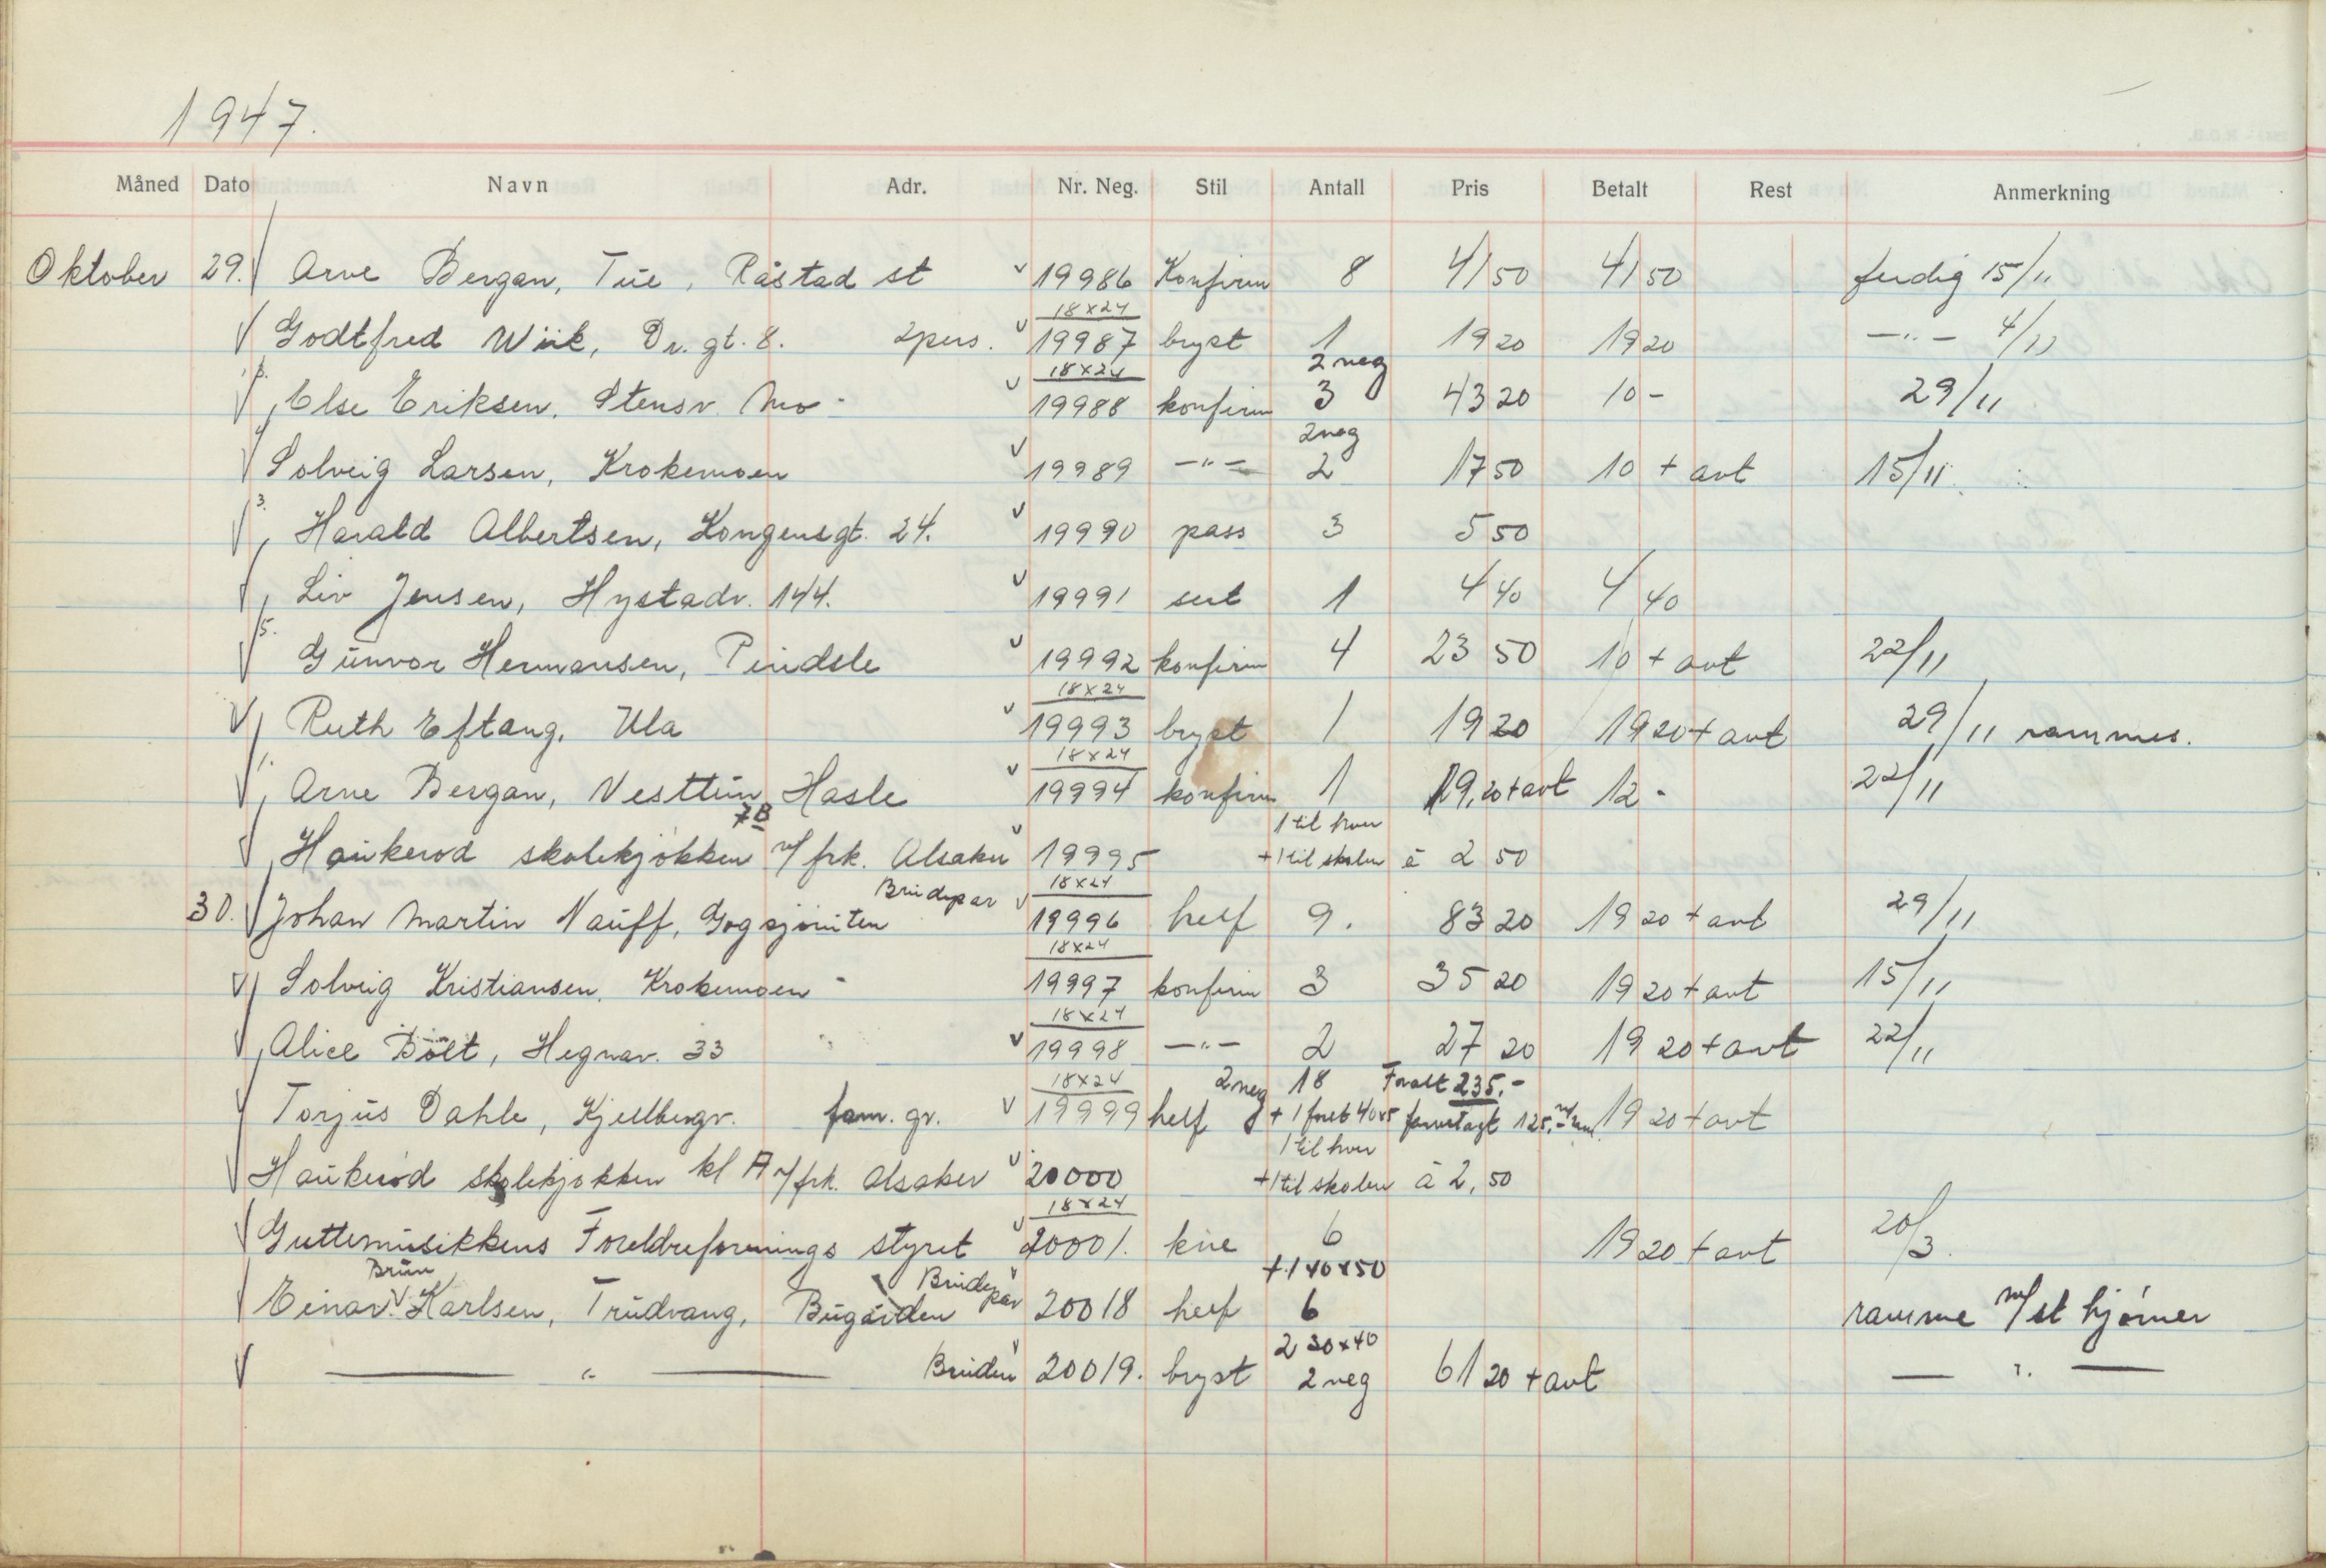 1947.
Måned Dato Navn Adr. Nr. Neg. Stil Antall Pris Betalt Rest Anmerkning
Oktober 29. Arve Bergan, Tue, Råstad st 19986 Konfirm 8 41 50 41 50 ferdig 15/11
18x24
Godtfred Wiik, Dr. gt. 8. 2pers. 19987 bryst 1 19 20 19 20 —"— 4/11
18x24 2 neg
Else Eriksen, Stensv. Mo - 19988 konfirm 3 43 20 10 - 29/11
2 neg
Solveig Larsen, Krokemoen 19989 —"— 2 17 50 10 + avt 15/11
3.
Harald Albertsen, Kongensgt. 24. 19990 pass 3 5 50
Liv Jensen, Hystadv. 144. 19991 sert 1 4 40 4 40
5.
Gunvor Hermansen, Pindsle 19992 konfirm 4 23 50 10 + avt 22/11
18x24
Ruth Eftang, Ula 19993 bryst 1 19 20 19 20 + avt 29/11 rammes.
18x24
Arne Bergan, Vesttun, Hasle 19994 konfirm 1 19,20 + avt 12 - 22/11
7B 1 til hver
Haukerød skolekjøkken v/ frk. Alsaker 19995 + 1 til skolen à 2 50
Brudepar 18x24
30. Johan Martin Nauff, Gogsjøruten 19996 helf 9. 83 20 19 20 + avt 29/11
18x24
Solveig Kristiansen, Krokemoen - 19997 konfirm 3 35 20 19 20 + avt 15/11
18x24
Alice Bølt, Hegnav. 33 19998 —"— 2 27 20 19 20 + avt 22/11
18x24 2 neg 18 Foralt 235.-
Torjus Dahle, Kjellbergv. fam. gr. 19999 helf + 1 forst 40x5 125.- 19 20 + avt
1 til hver
Haukerød skolekjøkken kl A v/ frk. Alsaker 20000 + 1 til skolen à 2,50
18x24
Guttemusikkens Foreldreforenings styret 20001. kne 6 19 20 + avt 20/3.
Brun Brudepar + 1 40x50
Einar Karlsen, Trudvang, Bugården 20018 helf 6 ramme m/ st hjørner
2 30x40
— " — Bruden 20019. bryst 2 neg 61 20 + avt — " —